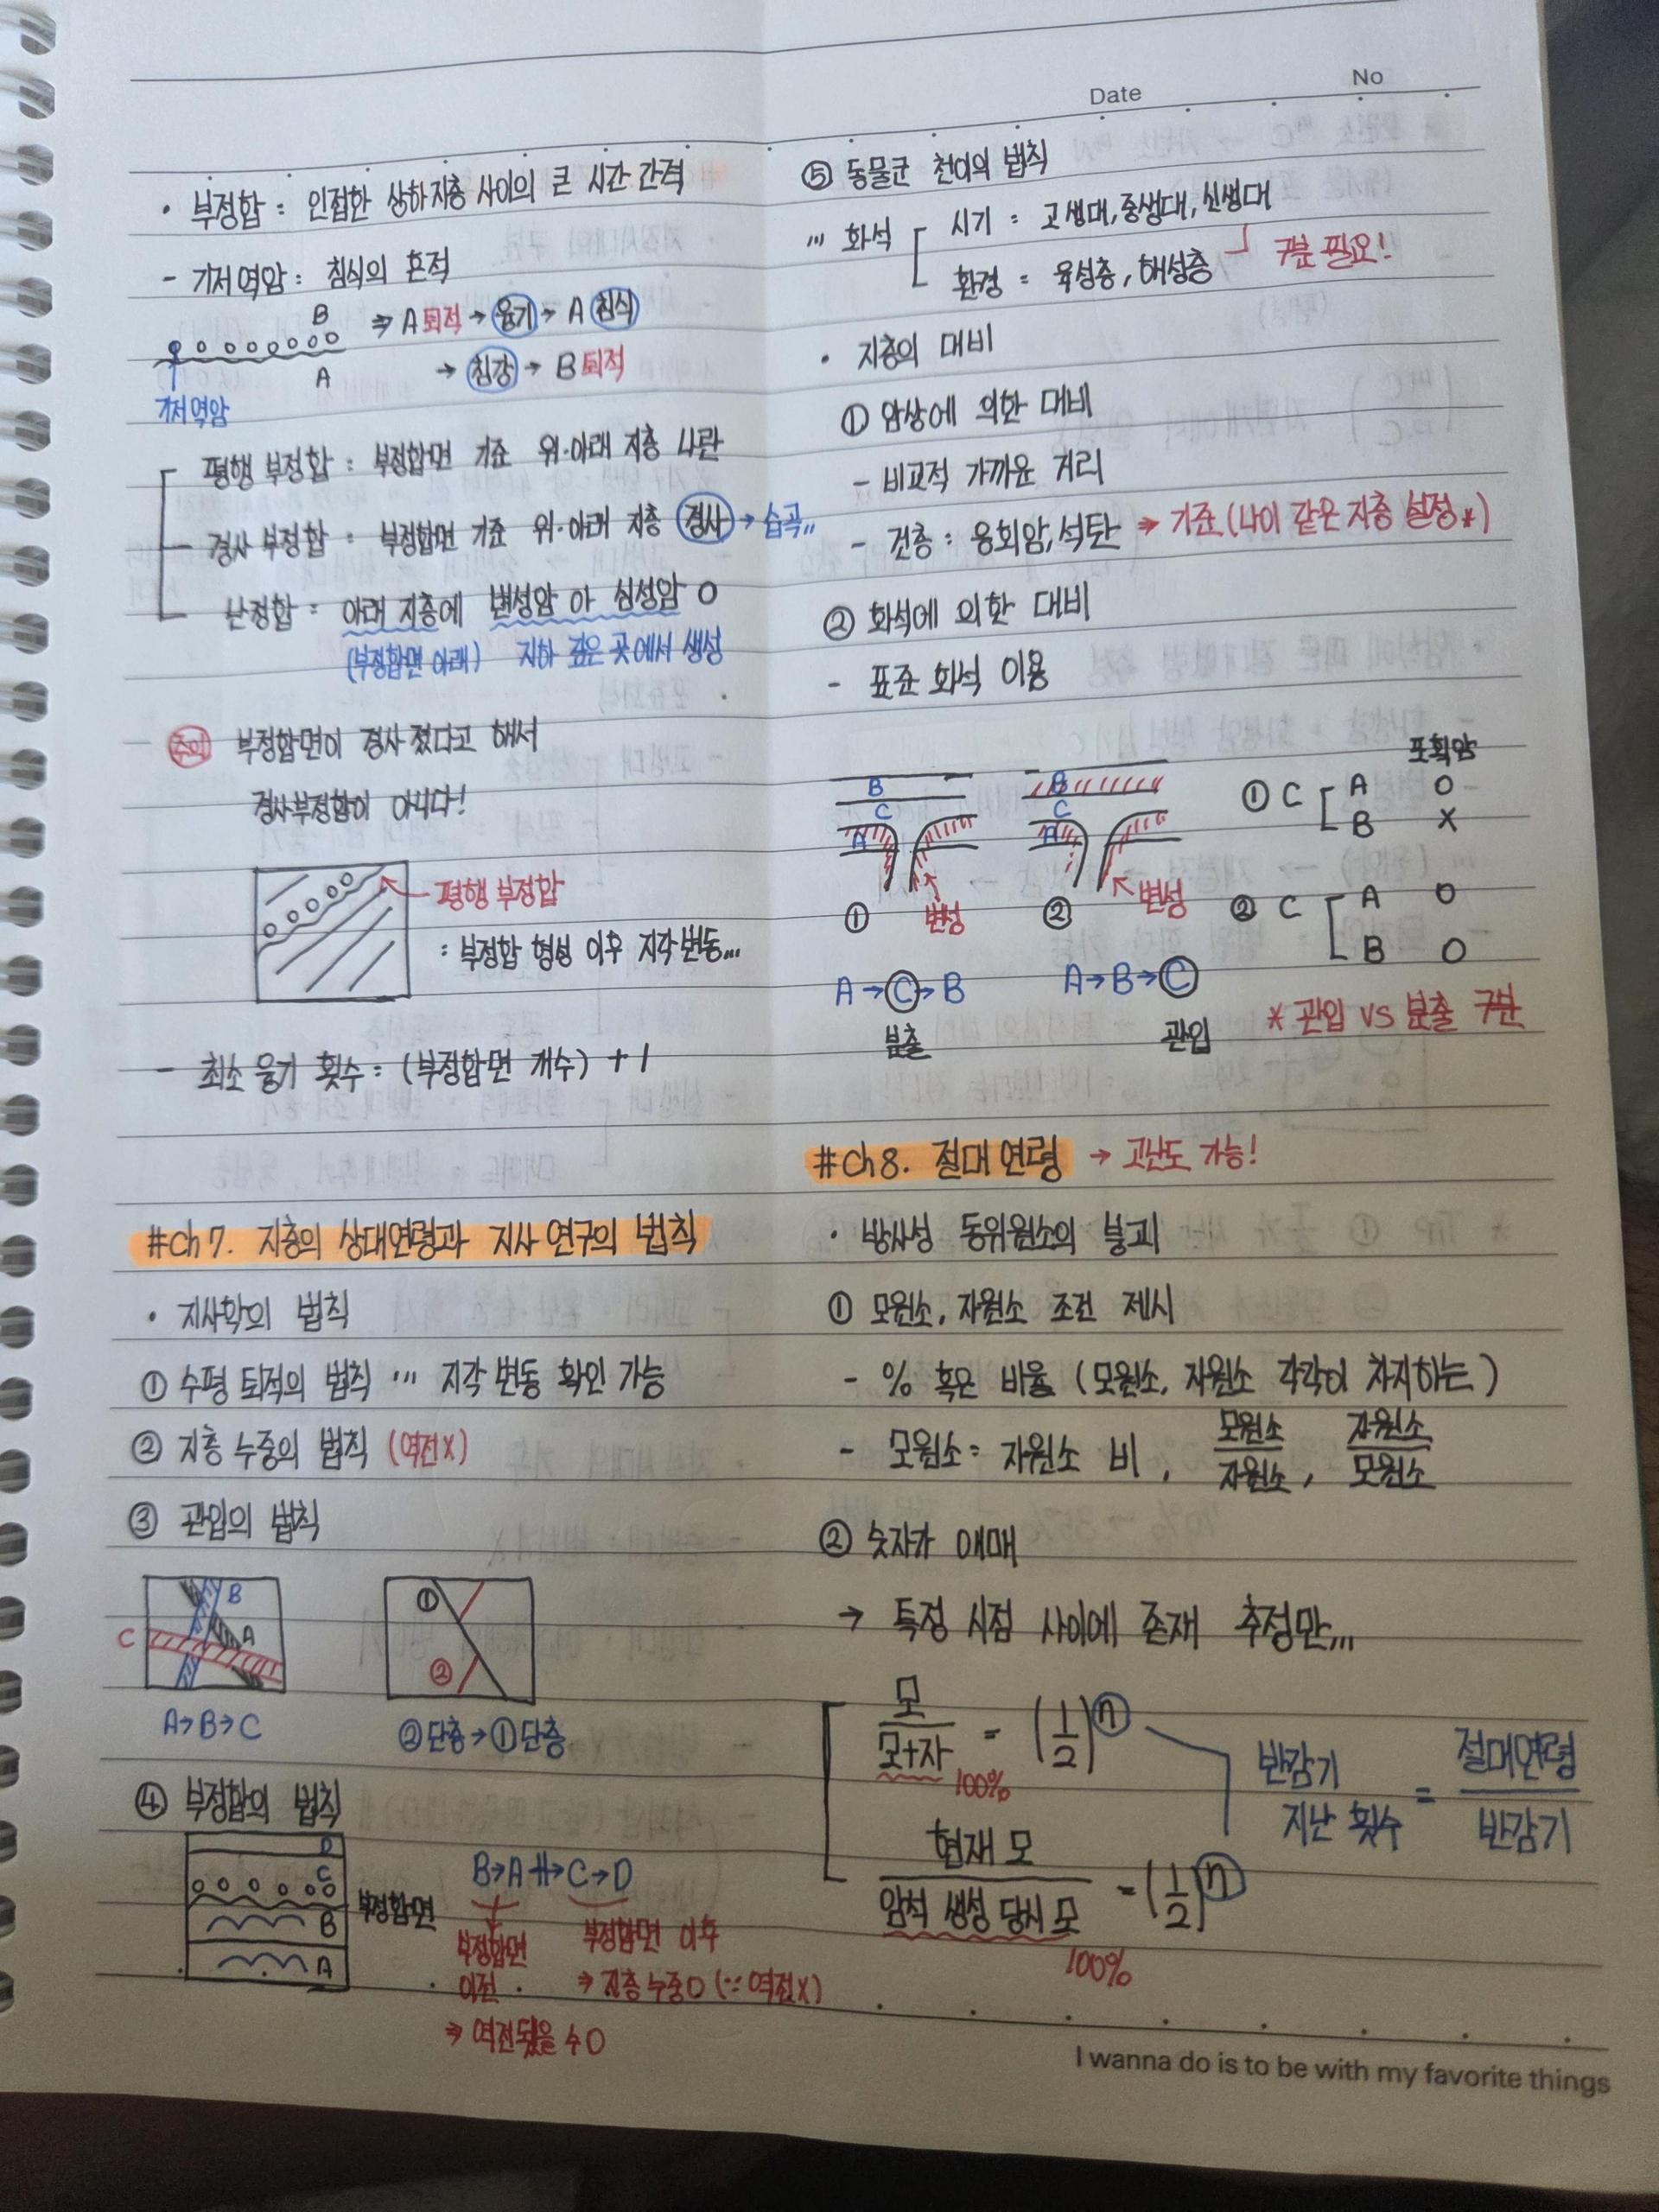 Date
No
· 부정합 : 인접한 상하지층 사이의 큰 시간 간격
- 기저역암 : 침식의 흔적
B
⇒ A 퇴적 → 융기 → A 침식
A
→ 침강 → B 퇴적
기저역암
평행 부정합 : 부정합면 기준 위·아래 지층 나란
경사 부정합 : 부정합면 기준 위·아래 지층 경사 → 습곡,,
난정합 : 아래 지층에 변성암 or 심성암 O
(부정합면 아래) 지하 깊은 곳에서 생성
주의 부정합면이 경사졌다고 해서
경사부정합이 아니다!
평행 부정합
: 부정합 형성 이후 지각변동...
- 최소 융기 횟수 : (부정합면 개수) + 1
#Ch 7. 지층의 상대연령과 지사 연구의 법칙
· 지사학의 법칙
① 수평 퇴적의 법칙 ··· 지각 변동 확인 가능
② 지층 누중의 법칙 (역전X)
③ 관입의 법칙
B
A
C
A→B→C
①
②
②단층→①단층
④ 부정합의 법칙
D
C
B
A
부정합면
B→A⇸C→D
부정합면
이전
⇒ 역전됐을 수 O
부정합면 이후
⇒ 지층누중O (∵ 역전X)
⑤ 동물군 천이의 법칙
··· 화석
시기 : 고생대, 중생대, 신생대
환경 : 육성층, 해성층
구분 필요!
· 지층의 대비
① 암상에 의한 대비
- 비교적 가까운 거리
- 건층 : 응회암, 석탄 ⇒ 기준 (나이 같은 지층 설정*)
② 화석에 의한 대비
- 표준 화석 이용
B
C
A
변성
①
A→C→B
분출
B
C
A
변성
②
A→B→C
관입
포획암
① C
A O
B X
② C
A O
B O
* 관입 VS 분출 구분
#Ch 8. 절대 연령 → 고난도 가능!
· 방사성 동위원소의 붕괴
① 모원소, 자원소 조건 제시
- % 혹은 비율 (모원소, 자원소 각각이 차지하는)
- 모원소 : 자원소 비, 모원소/자원소, 자원소/모원소
② 숫자가 애매
→ 특정 시점 사이에 존재 추정만...
모/모+자 = (1/2)ⁿ
100%
현재 모/암석 생성 당시 모 = (1/2)ⁿ
100%
반감기
지난 횟수 = 절대연령/반감기
I wanna do is to be with my favorite things